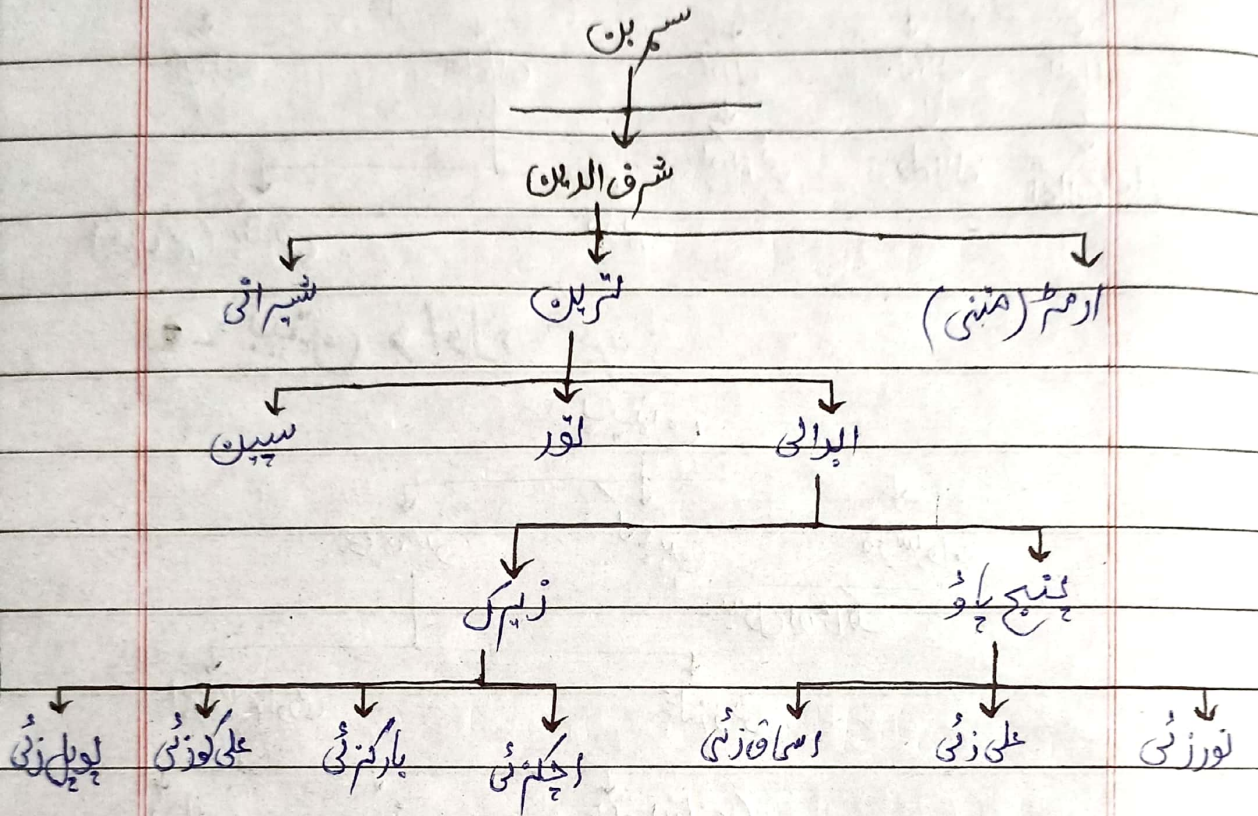 سم بن
شرف الدین
ارمڑ (متبنی) ترین شیرانی
ابدالی تور سپین
پنج پاؤ زیرک
نورزئی علی زئی اسحاق زئی اچکزئی بارکزئی علی کوزئی پوپل زئی